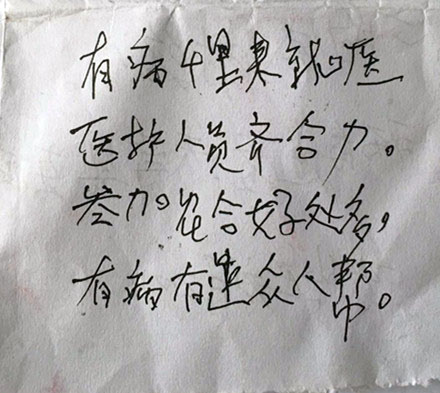 有病千里来就医
医护人员齐合力。
参加农合好处多,
有病有遣众人帮。